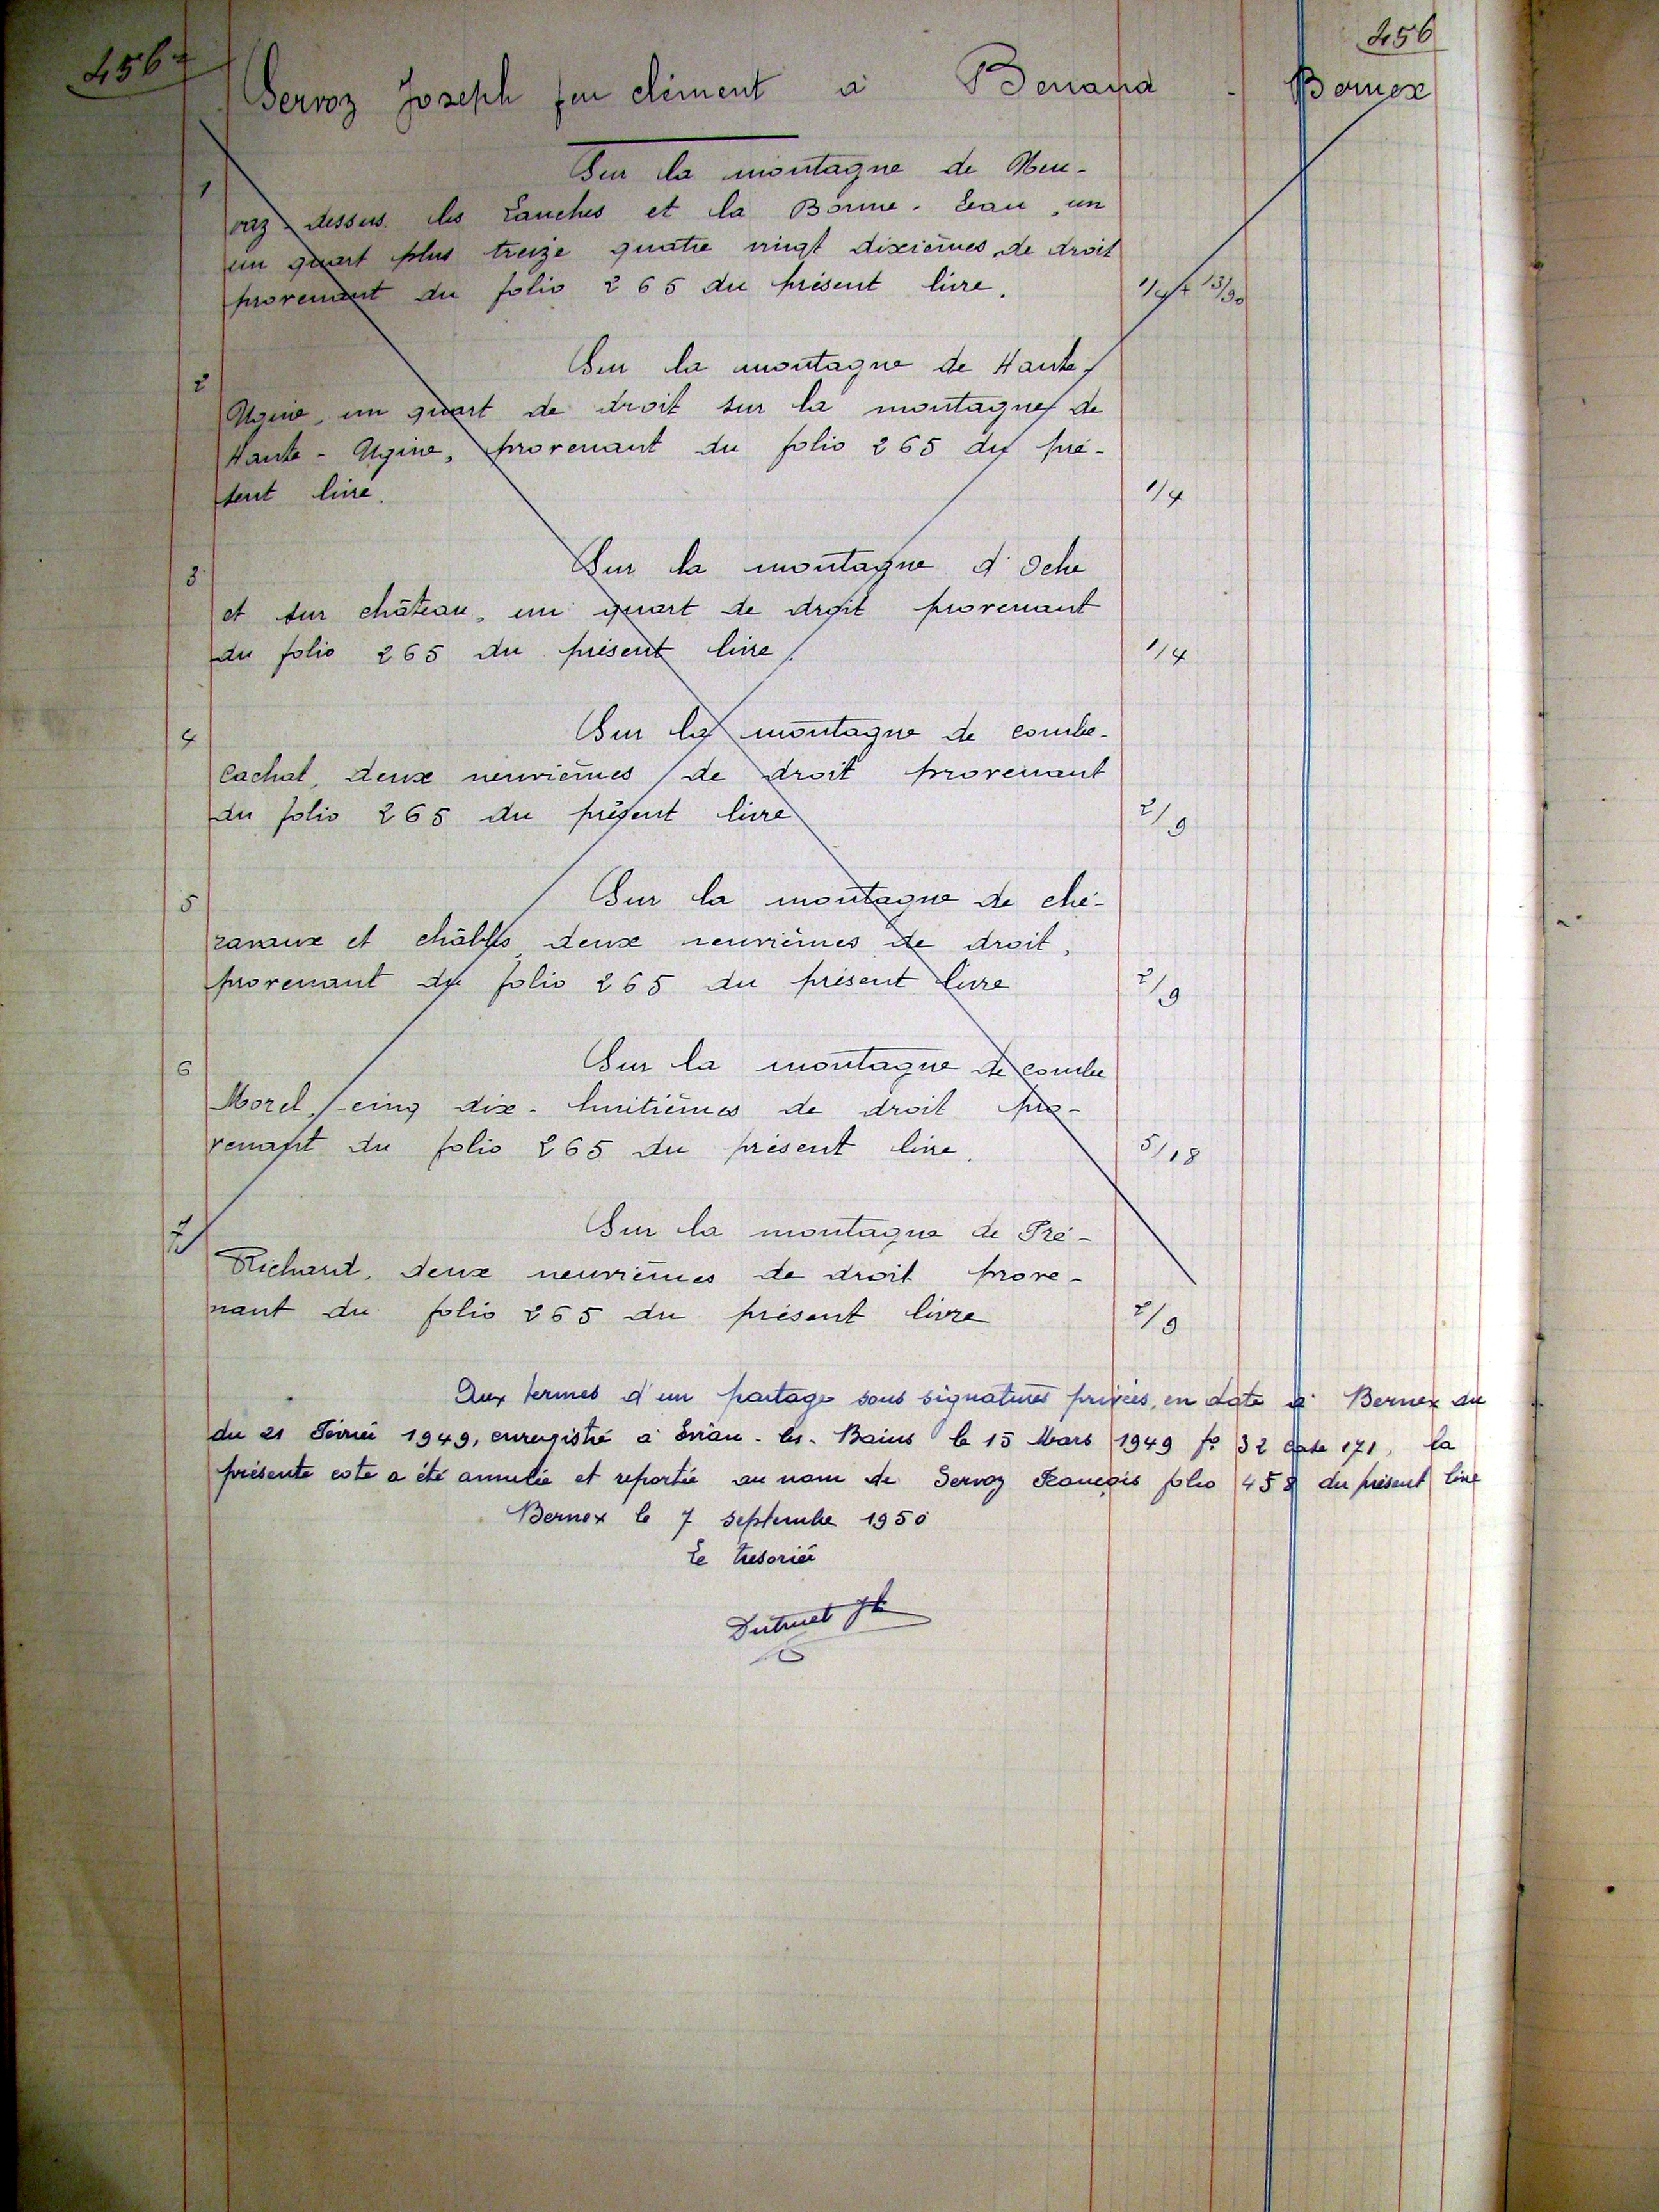 456
456
Servoz Joseph feu clément à Benand - Bernex
Sur la montagne de Neu-
1
vaz - dessus. les Lanches et la Borne. Eau, un
un quart plus treize quatre vingt dixièmes de droit
provenant du folio 265 du présent livre. 1/4 + 13/90
Sur la montagne de Haute-
2
Ugine, un quart de droit sur la montagne de
Haute - Ugine, provenant du folio 265 du pré-
sent livre. 1/4
Sur la montagne d'Oche
3
et sur château, un quart de droit provenant
du folio 265 du présent livre. 1/4
Sur la montagne de combe-
4
Cachat, deux neuvièmes de droit provenant
du folio 265 du présent livre 2/9
Sur la montagne de ché-
5
ravaux et châbles, deux neuvièmes de droit,
provenant du folio 265 du présent livre 2/9
Sur la montagne de combe
6
Morel, cinq dix-huitièmes de droit pro-
venant du folio 265 du présent livre. 5/18
Sur la montagne de Pré-
7
Richard, deux neuvièmes de droit prove-
nant du folio 265 du présent livre 2/9
Aux termes d'un partage sous signatures privées, en date à Bernex du
du 21 Février 1949, enregistré à Evian-les-Bains le 15 Mars 1949 fº 32 case 171, la
présente cote a été annulée et reportée au nom de Servoz François folio 458 du présent livre
Bernex le 7 septembre 1950
Le trésorier
Dutruel